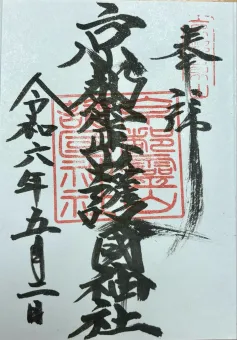 奉拝
京都霊山護國神社
令和六年五月二日